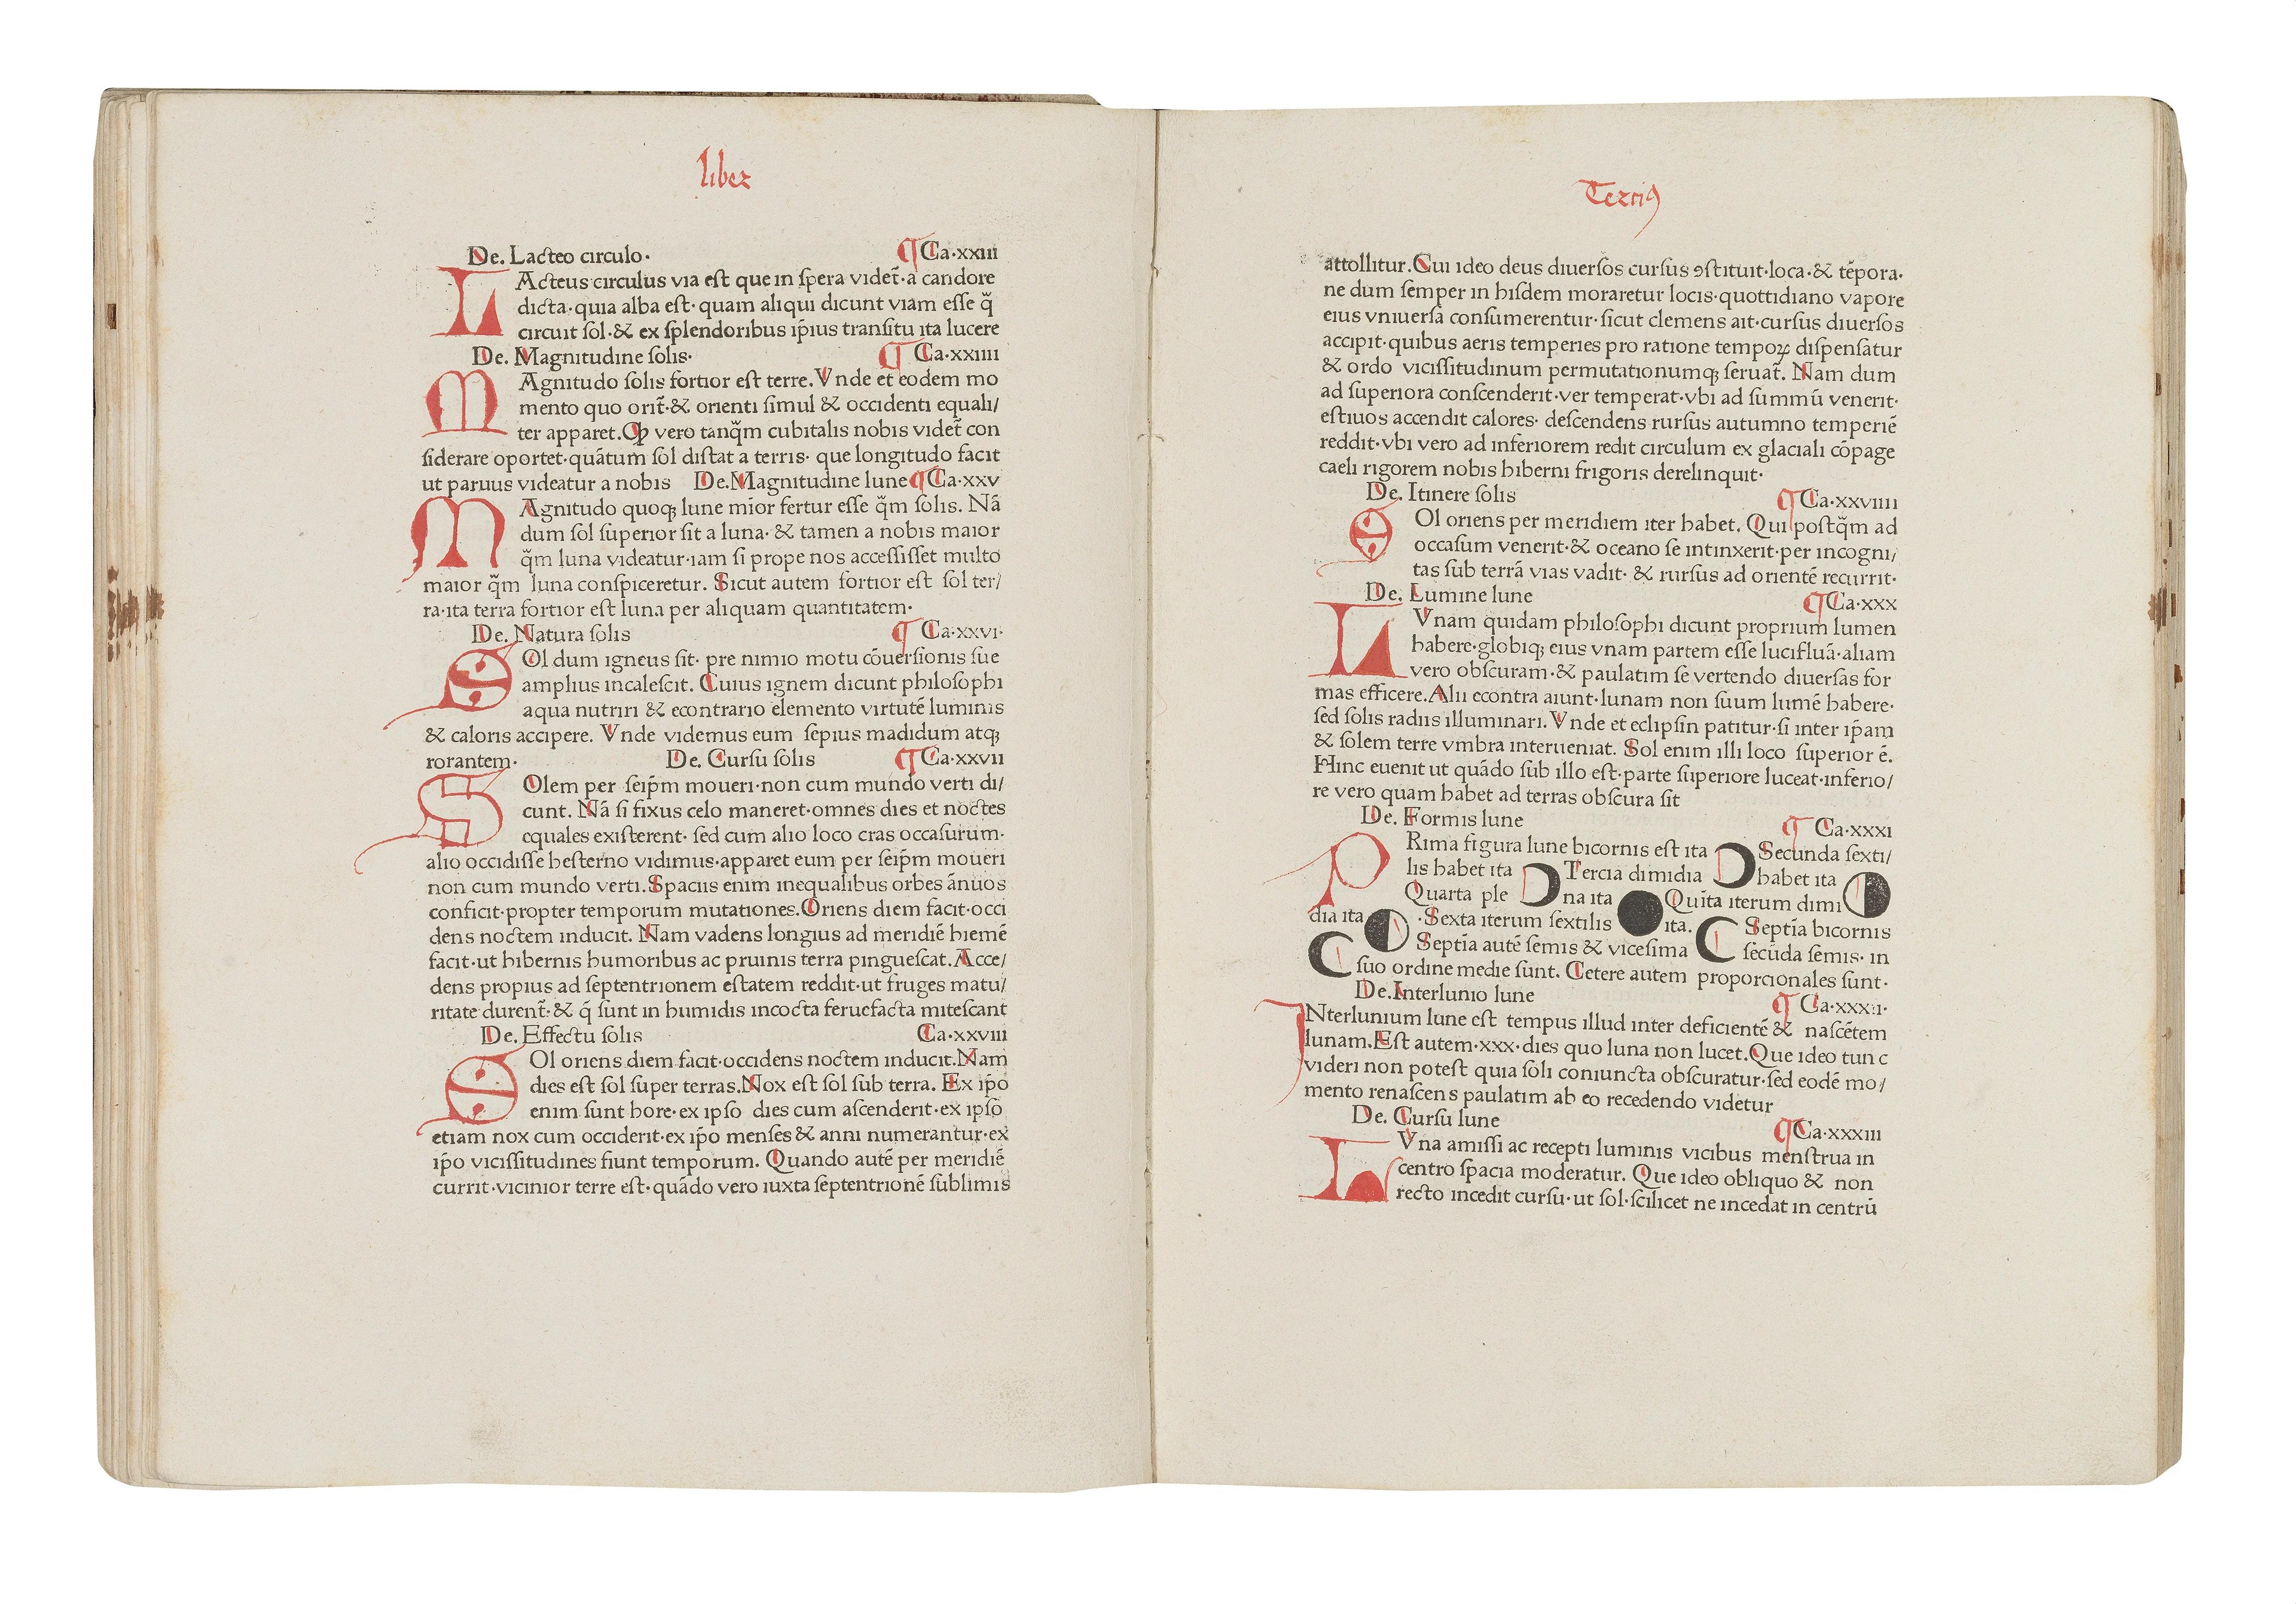 liber
De. Lacteo circulo· ¶ Ca·xxiii
LActeus circulus via est que in spera videt̃·a candore
dicta·quia alba est·quam aliqui dicunt viam esse q̃
circuit sol·& ex splendoribus ip̃ius transitu ita lucere
De. Magnitudine solis· ¶ Ca·xxiiii
MAgnitudo solis fortior est terre. Vnde et eodem mo
mento quo orit̃·& orienti simul & occidenti equali/
ter apparet. Ꝙ vero tanq̃m cubitalis nobis videt̃ con
siderare oportet·quãtum sol distat a terris· que longitudo facit
ut paruus videatur a nobis De. Magnitudine lune ¶ Ca·xxv
MAgnitudo quoqꝫ lune mior fertur esse q̃m solis. Nã
dum sol superior sit a luna·& tamen a nobis maior
q̃m luna videatur·iam si prope nos accessisset multo
maior q̃m luna conspiceretur. Sicut autem fortior est sol ter/
ra·ita terra fortior est luna per aliquam quantitatem·
De. Natura solis ¶ Ca·xxvi·
SOl dum igneus sit· pre nimio motu cõuersionis sue
amplius incalescit. Cuius ignem dicunt philosophi
aqua nutriri & econtrario elemento virtutẽ luminis
& caloris accipere. Vnde videmus eum sepius madidum atqꝫ
rorantem· De. Cursu solis ¶ Ca·xxvii
SOlem per seip̃m moueri·non cum mundo verti di/
cunt. Nã si fixus celo maneret·omnes dies et noctes
equales existerent· sed cum alio loco cras occasurum·
alio occidisse hesterno vidimus·apparet eum per seip̃m moueri
non cum mundo verti. Spaciis enim inequalibus orbes ãnuos
conficit·propter temporum mutationes. Oriens diem facit·occi
dens noctem inducit. Nam vadens longius ad meridiẽ hiemẽ
facit·ut hibernis humoribus ac pruinis terra pinguescat. Acce/
dens propius ad septentrionem estatem reddit·ut fruges matu/
ritate durent̃·& q̃ sunt in humidis incocta feruefacta mitescant
De. Effectu solis Ca·xxviii
SOl oriens diem facit·occidens noctem inducit. Nam
dies est sol super terras. Nox est sol sub terra. Ex ip̃o
enim sunt hore·ex ipso dies cum ascenderit·ex ipso
etiam nox cum occiderit·ex ip̃o menses & anni numerantur·ex
ip̃o vicissitudines fiunt temporum. Quando autẽ per meridiẽ
currit·vicinior terre est·quãdo vero iuxta septentrionẽ sublimis
Terciꝰ
attollitur. Cui ideo deus diuersos cursus ꝯstituit·loca·& tẽpora·
ne dum semper in hisdem moraretur locis·quottidiano vapore
eius vniuersa consumerentur·sicut clemens ait·cursus diuersos
accipit·quibus aeris temperies pro ratione tempoꝝ dispensatur
& ordo vicissitudinum permutationumqꝫ seruat̃. Nam dum
ad superiora conscenderit·ver temperat·vbi ad summũ venerit·
estiuos accendit calores· descendens rursus autumno temperiẽ
reddit·vbi vero ad inferiorem redit circulum ex glaciali cõpage
caeli rigorem nobis hiberni frigoris derelinquit·
De. Itinere solis ¶ Ca·xxviiii
SOl oriens per meridiem iter habet. Qui postq̃m ad
occasum venerit·& oceano se intinxerit·per incogni/
tas sub terrã vias vadit·& rursus ad orientẽ recurrit·
De. Lumine lune ¶ Ca·xxx
LVnam quidam philosophi dicunt proprium lumen
habere·globiqꝫ eius vnam partem esse lucifluã·aliam
vero obscuram·& paulatim se vertendo diuersas for
mas efficere. Alii econtra aiunt·lunam non suum lumẽ habere·
sed solis radiis illuminari. Vnde et eclipsin patitur·si inter ip̃am
& solem terre vmbra interueniat. Sol enim illi loco superior ẽ.
Hinc euenit ut quãdo sub illo est·parte superiore luceat·inferio/
re vero quam habet ad terras obscura sit
De. Formis lune ¶ Ca·xxxi
PRima figura lune bicornis est ita Secunda sexti/
lis habet ita Tercia dimidia habet ita
Quarta ple na ita Quĩta iterum dimi
dia ita ·Sexta iterum sextilis ita. Septĩa bicornis
Septĩa autẽ semis & vicesima secũda semis· in
suo ordine medie sunt. Cetere autem proporcionales sunt·
De. Interlunio lune ¶ Ca·xxxii·
INterlunium lune est tempus illud inter deficientẽ & nascẽtem
lunam. Est autem·xxx·dies quo luna non lucet. Que ideo tunc
videri non potest quia soli coniuncta obscuratur·sed eodẽ mo/
mento renascens paulatim ab eo recedendo videtur
De. Cursu lune ¶ Ca·xxxiii
LVna amissi ac recepti luminis vicibus menstrua in
centro spacia moderatur. Que ideo obliquo & non
recto incedit cursu·ut sol·scilicet ne incedat in centrũ